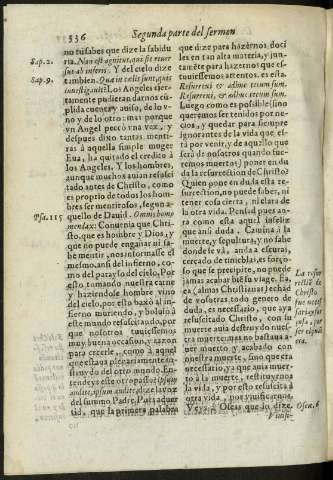 536
Segunda parte del sermon
no sufabes que dize la sabidu
ria. Non est agnitus, qui sit reuer
sus ab inferis. Y del cielo dize
tambien. Quæ in cœlis sunt, quis
inuestigauit? Los Angeles cier-
tamente pudieran darnos cũ-
plida cuenta, y auiso, de lo v-
no y de lo otro: mas porque
vn Angel peccò vna vez, y
despues dixo tantas menti-
ras à aquella simple muger
Eua, ha quitado el credito à
los Angeles. Y los hombres,
aunque muchos auian resusci
tado antes de Christo, como
es proprio de todos los hom-
bres ser mentirosos, segun a
quello de Dauid. Omnis homo
mendax: Conuenia que Chri-
sto, que es hombre y Dios, y
que no puede engañar ni sa-
be mentir, nos informasse el
mesmo, ansi del infierno, co-
mo del parayso del cielo. Por
esto tomando nuestra carne
y haziendose hombre vino
del cielo, por esto baxò al in-
fierno muriendo, y boluio à
este mundo resuscitando, por
que nosotros tuuiessemos
muy buena occasion, y razon
para creerle, como à aquel
que estaua plenariamente
del otro mundo. En
tendeys este otro passo? Ipsum
audite, ipsum audite, dize la voz
del summo Padre. Para aquer
tid, que la primera palabra
Sap. 2.
Sap. 9.
Psa. 115
que dize para hazernos doci
les en tan alta materia, y jun-
tamẽte para hazernos que es-
tuuiessemos attentos, es esta.
Resurrexi & adhuc tecum sum.
Resurrexi, & adhuc tecum sum.
Luego como es possible (sino
queremos ser tenidos por ne-
cios, y quedar para siempre
ignorantes de la vida que es-
tà por venir, y de aquello que
serà de nosotros quando fue-
remos muertos) poner en du
da la resurrection de Christo?
Quien pone en duda esta re-
surrection, no puede saber, ni
tener cosa cierta, ni clara de
la otra vida. Pensad pues an-
si como esta aqui infeliz
de la otra alma. Camina à la
muerte, y sepultura, y no sabe
donde se và, anda à escuras,
cercado de tinieblas, es forço
so que se precipite, no puede
jamas acabar biẽ su viage. Ea,
ea (almas Christianas) echad
de vosotras todo genero de
duda, es necessario, que aya
resuscitado Christo, con su
muerte auia destruydo nues-
tra muerte: mas no bastaua a-
uer muerto y acabado con
nuestra muerte, sino que era
necessario, ya que auia muer-
to à la muerte, restituyrnos
la vida, y por esto resuscita à
otra vida, por viuificarnos.
Veys à Oseas que lo dize.
La resur
rectiõ de
Christo
fue neces
saria
Osee. 6
Viuifi-